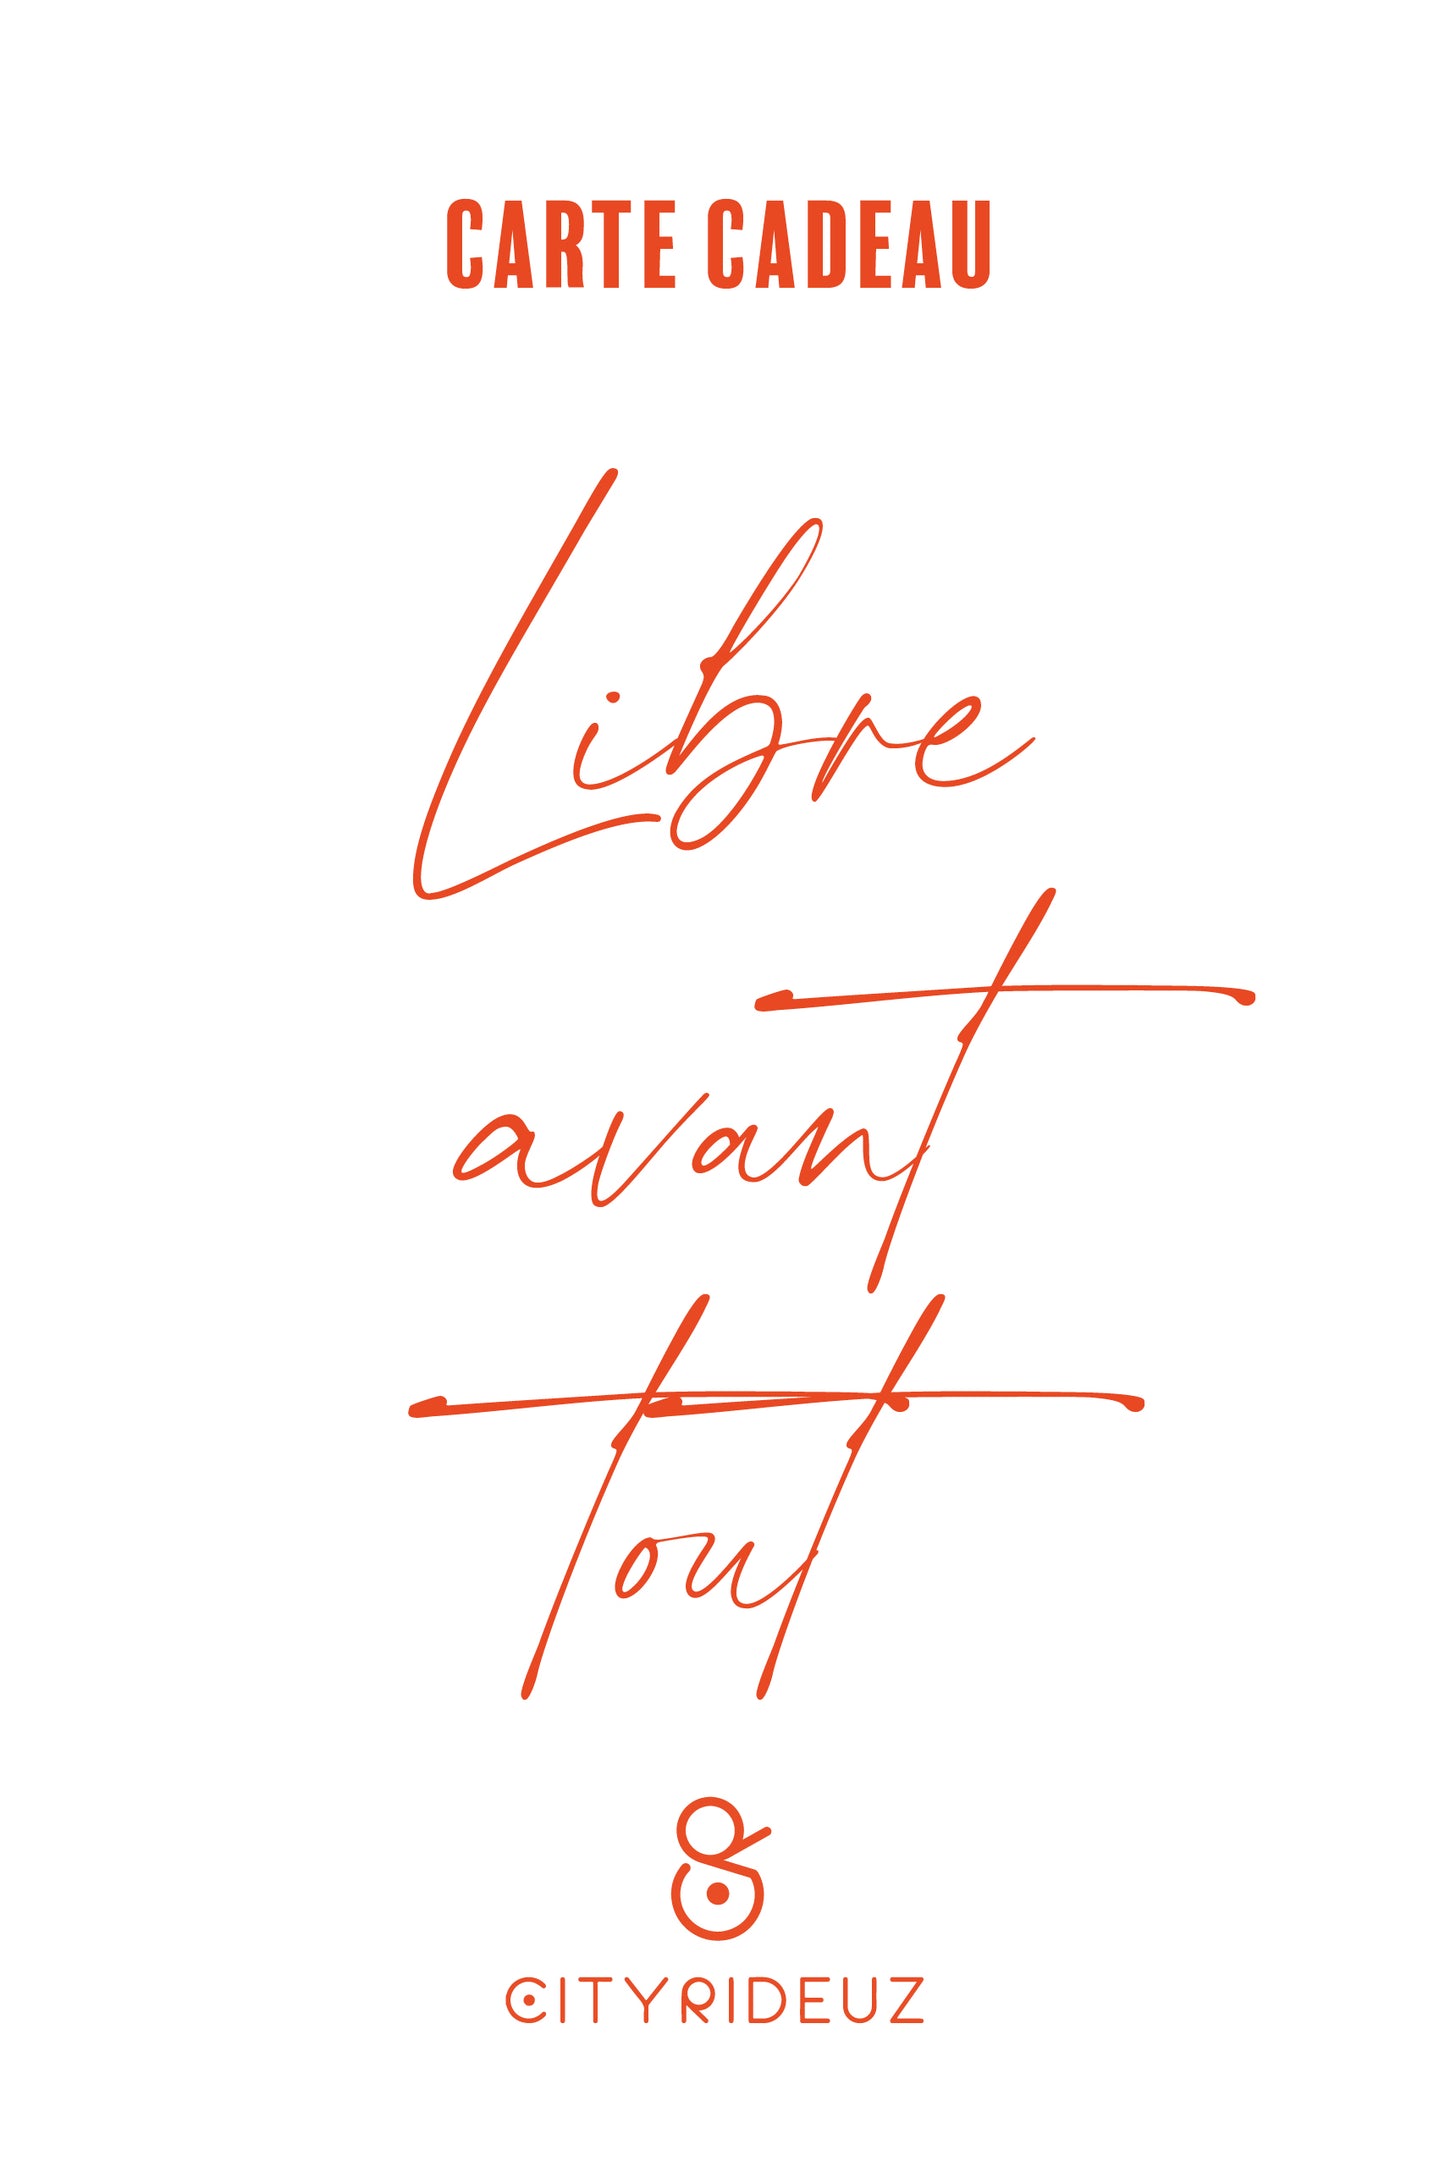 CARTE CADEAU
Libre
avant
tout
CITYRIDEUZ